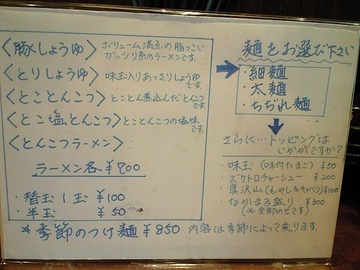 〈豚Xしょうゆ〉 ボリューム満点の脂っこい
ガッツリ系のラーメンです。
〈とりしょうゆ〉 味玉入りあっさりしょうゆ
です。
〈とことんこつ〉 とことん煮込んだとんこつ
です。
〈とこ塩とんこつ〉 とことんこつの塩味
です。
〈とんこつラーメン〉
ラーメン各 ¥700
・替玉1玉 ¥100
・半玉 ¥50
*季節のつけ麺 ¥850 内容は季節によって変ります。
麺をお選び下さい
・細麺
・太麺
・ちぢれ麺
さらに…トッピングは
いかがですか?
味玉(味付たまご) ¥50
ズケトロチャーシュー ¥200
具沢山(もやし&キャベツ) ¥100
なかよし盛り ¥300
(全部のせです)